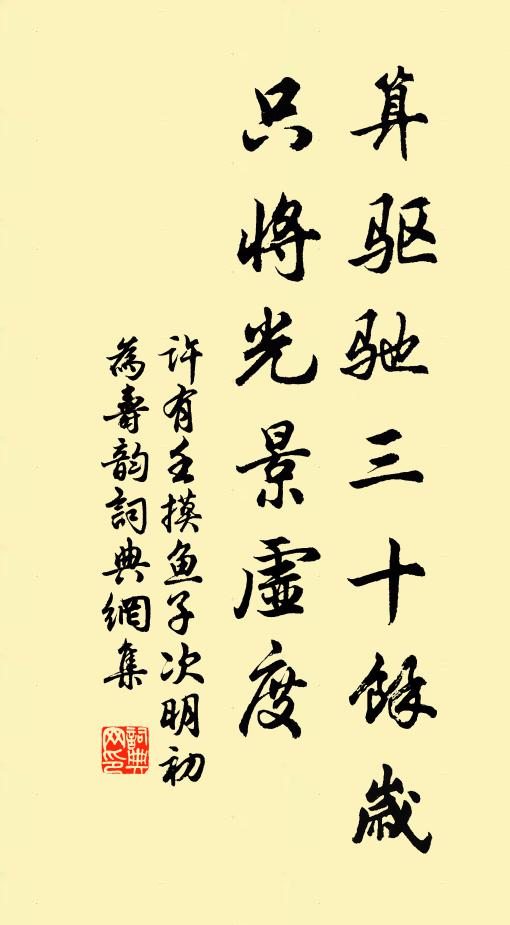 算驱驰三十馀岁
只将光景虚度
許有壬摸鱼子次明初
為壽韵詞典網集
詞典网印